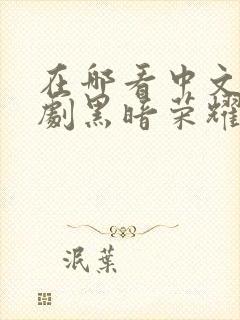 在哪看中文
劇黑暗荣耀
泯葉